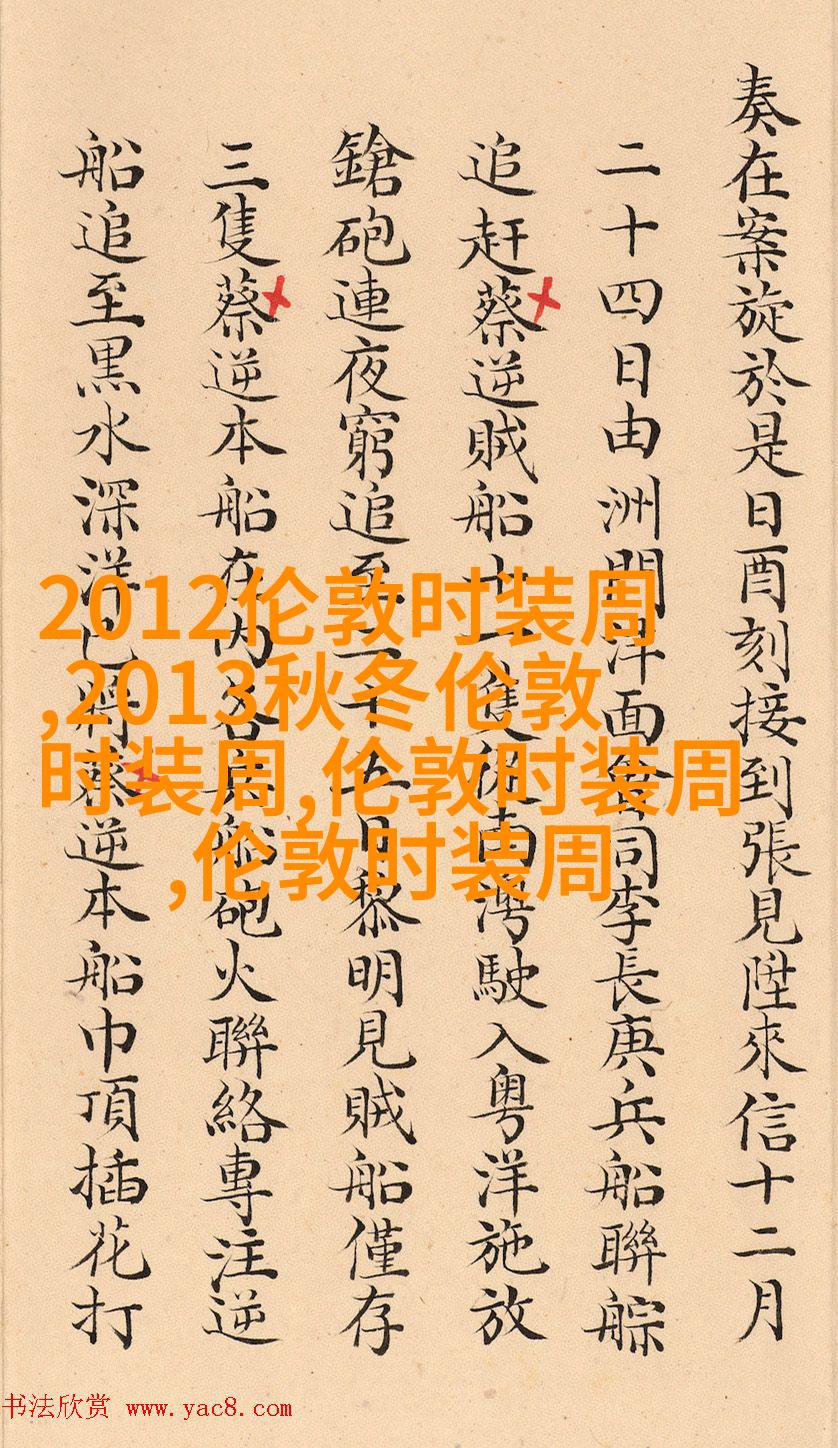 奏在案旋於是日酉刻接到張見陞來信十二月
二十四日由洲洋面會同李長庚兵船聯䑸
追赶蔡逆賊船十一隻南灣駛入粤洋施放
鎗砲連夜窮追至二十五日黎明見賊船僅存
三隻蔡逆本船在內各兵船砲火聯絡專注逆
船追至黒水深洋已將蔡逆本船巾頂插花打
2012伦敦时装周
,2013秋冬伦敦
时装周,伦敦时装周
,伦敦时装周
书法欣赏 www.yac8.com